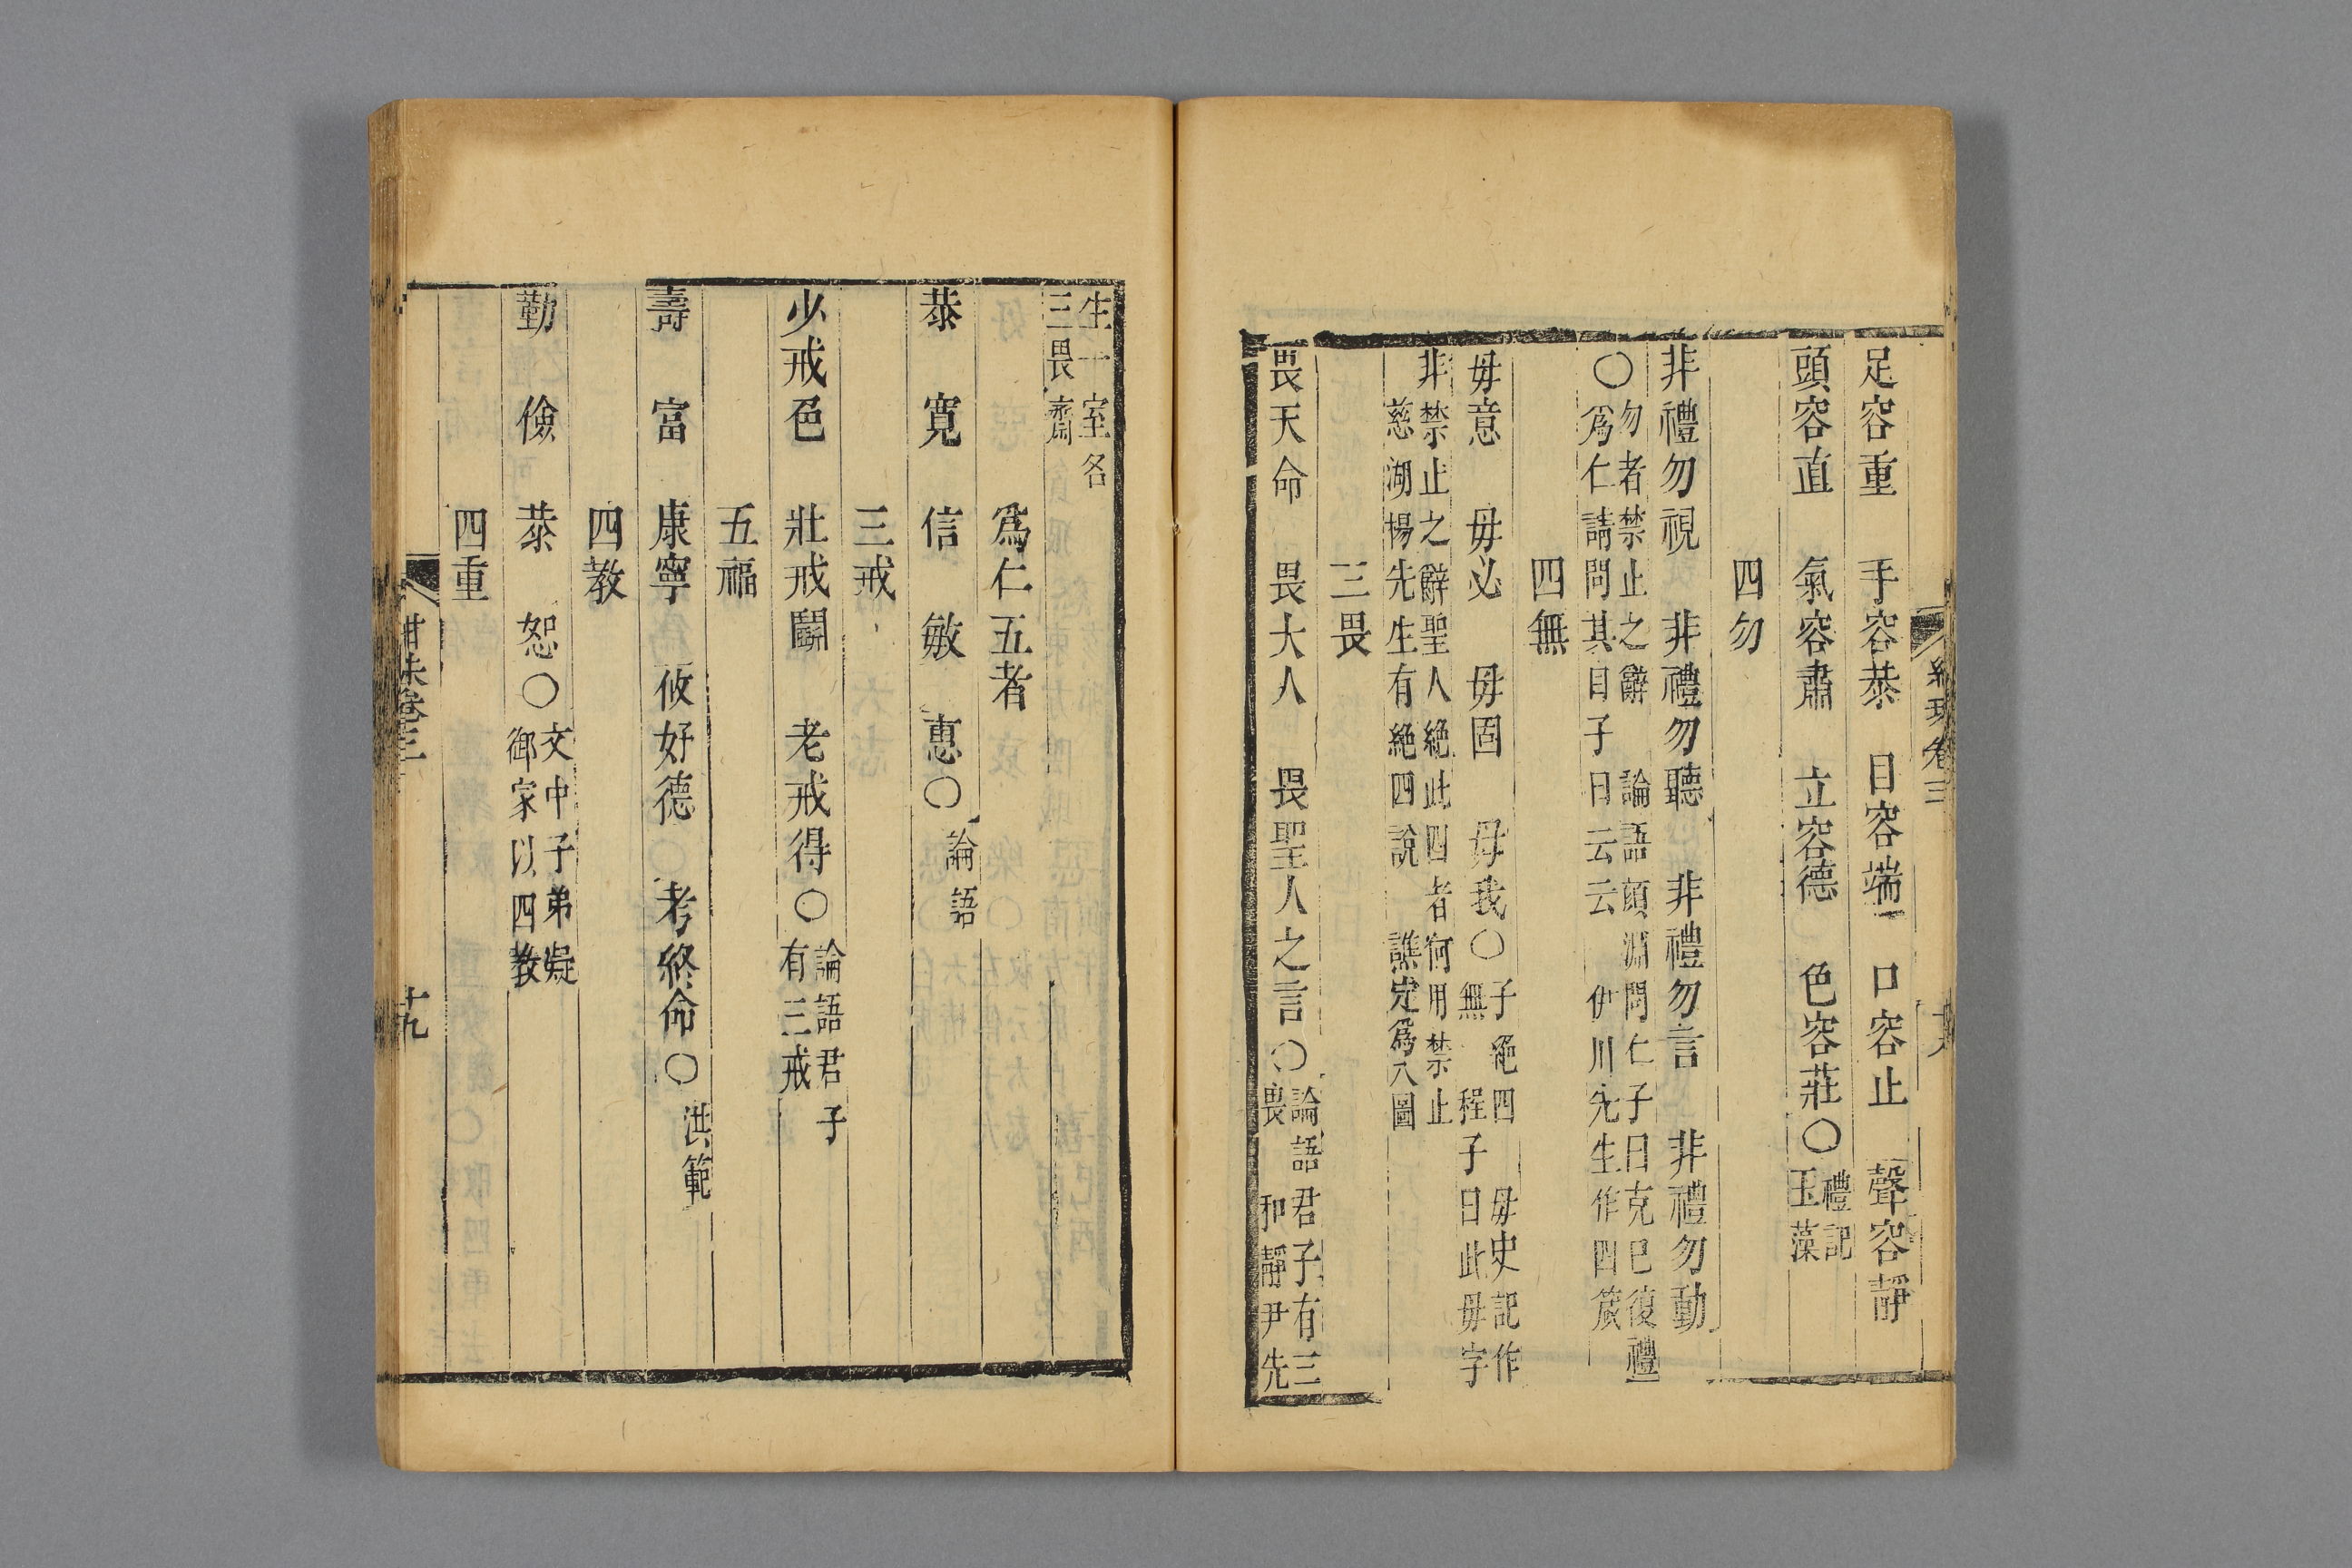 足容重　手容恭　目容端　口容止　聲容靜
頭容直　氣容肅　立容德　色容莊〇禮記
玉藻
四勿
非禮勿視　非禮勿聽　非禮勿言　非禮勿動
〇勿者禁止之辭　論語顔淵問仁子曰克己復禮
爲仁請問其目子曰云云　伊川先生作四箴
四無
毋意　毋必　毋固　毋我〇子絕四　毋史記作
無　程子曰此毋字
非禁止之辭聖人絶此四者何用禁止
慈湖楊先生有絶四說　譙定爲八圖
三畏
畏天命　畏大人　畏聖人之言〇論語君子有三
畏　和靜尹先
生一室名
三畏齋
爲仁五者
恭　寬　信　敏　惠〇論語
三戒
少戒色　壯戒鬭　老戒得〇論語君子
有三戒
五福
壽　富　康寧　攸好德　考終命〇洪範
四教
勤　儉　恭　恕〇文中子弟凝
御家以四教
四重
卷三
十九